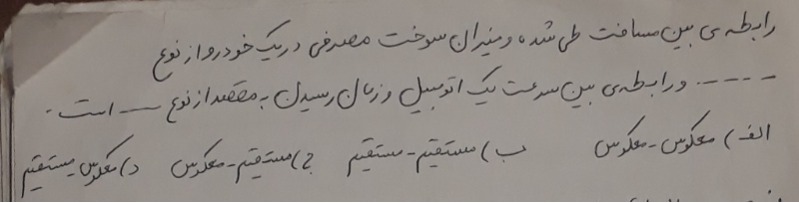 رابطه ی بین مسافت طی شده و میزان سوخت مصرفی در یک خودرو از نوع
----- و رابطه ی بین سرعت یک اتومبیل و زمان رسیدن به مقصد از نوع ---- است.
الف) معکوس - معکوس ب) مستقیم - مستقیم ج) مستقیم - معکوس د) معکوس - مستقیم